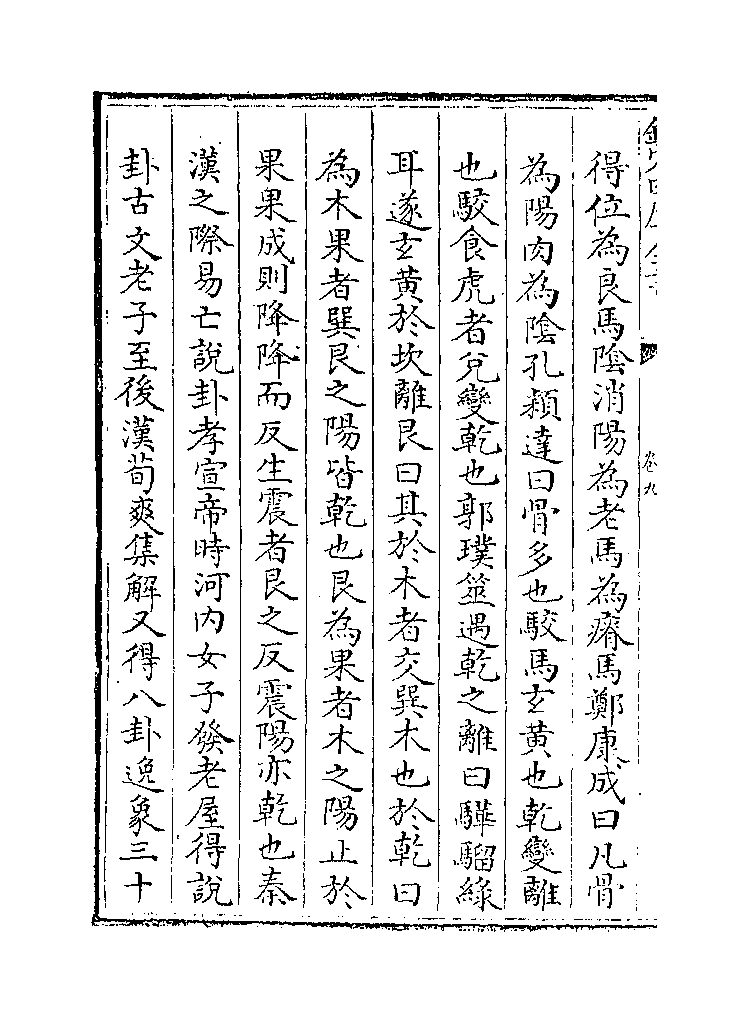 得位為良馬陰消陽為老馬為瘠馬鄭康成曰凡骨
為陽肉為陰孔穎達曰骨多也駮馬玄黄也乾變離
也駮食虎者兌變乾也郭璞筮遇乾之離曰驊騮緑
耳遂玄黄於坎離艮曰其於木者交巽木也於乾曰
為木果者巽艮之陽皆乾也艮為果者木之陽止於
果果成則降降而反生震者艮之反震陽亦乾也秦
漢之際易亡說卦孝宣帝時河内女子發老屋得說
卦古文老子至後漢荀爽集解又得八卦逸象三十
卷九